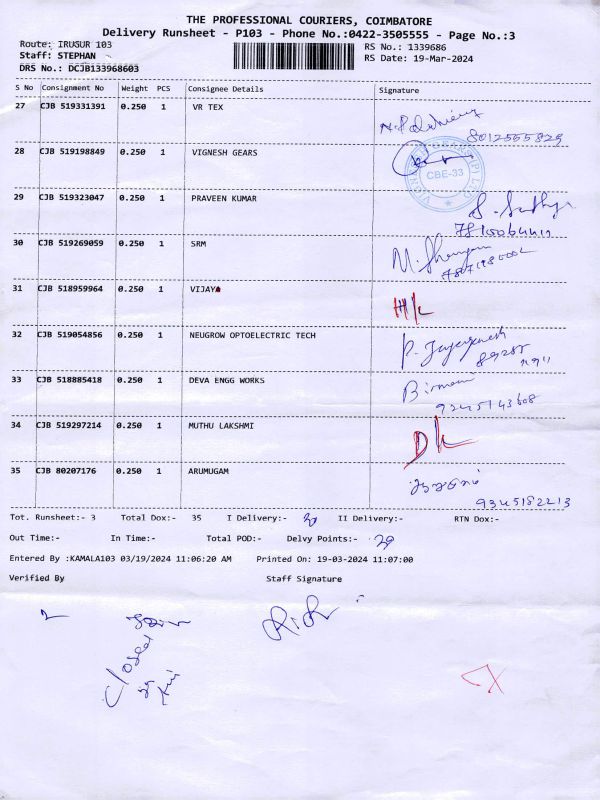 THE PROFESSIONAL COURIERS, COIMBATORE
Delivery Runsheet - P103 - Phone No.:0422-3505555 - Page No.:3
Route: IRUGUR 103
RS No.: 1339686
Staff: STEPHAN
RS Date: 19-Mar-2024
DRS No.: DCJB133968603
S No Consignment No Weight PCS Consignee Details Signature
27 CJB 519331391 0.250 1 VR TEX
8012555829
28 CJB 519198849 0.250 1 VIGNESH GEARS
CBE-33
29 CJB 519323047 0.250 1 PRAVEEN KUMAR
30 CJB 519269059 0.250 1 SRM
31 CJB 518959964 0.250 1 VIJAYA
32 CJB 519054856 0.250 1 NEUGROW OPTOELECTRIC TECH
33 CJB 518885418 0.250 1 DEVA ENGG WORKS
9345143608
34 CJB 519297214 0.250 1 MUTHU LAKSHMI
D/L
35 CJB 80207176 0.250 1 ARUMUGAM
9345182213
Tot. Runsheet:- 3 Total Dox:- 35 I Delivery:- II Delivery:- RTN Dox:-
Out Time:- In Time:- Total POD:- Delvy Points:-
Entered By :KAMALA103 03/19/2024 11:06:20 AM Printed On: 19-03-2024 11:07:00
Verified By Staff Signature